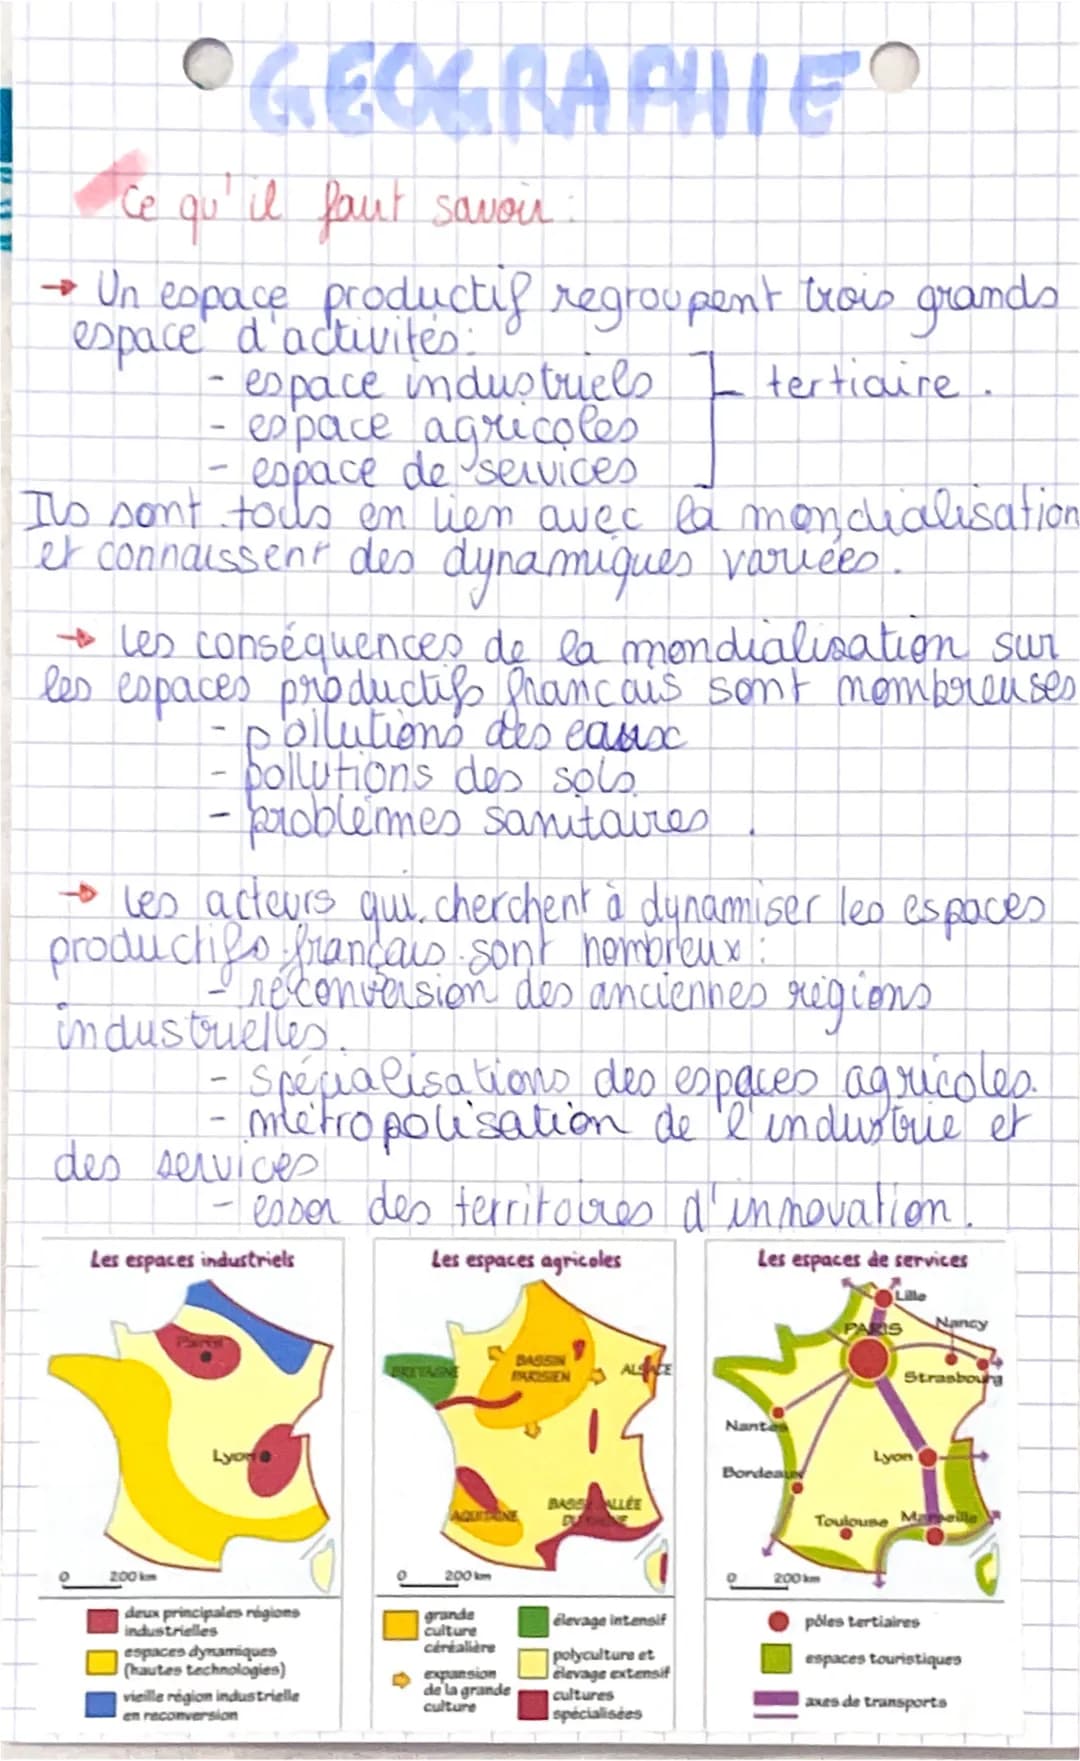 GEOGRAPHIE
Ce qu'il faut savoir :
→ Un espace productif regroupent trois grands
espace d'activités:
- espace industriels
- espace agricoles
- espace de services
tertiaire.
Ils sont tous en lien avec la mondialisation
et connaissent des dynamiques variées.
→ Les conséquences de la mondialisation sur
les espaces productifs francais sont nombreuses
- pollutions des eaux
- pollutions des sols
- problèmes sanitaires.
→ Les acteurs qui cherchent à dynamiser les espaces
productifs français sont nombreux :
- réconversion des anciennes régions
industrielles.
- spécialisations des espaces agricoles.
- métropolisation de l'industrie et
des services
- essor des territoires d'innovation.
Les espaces industriels
Paris
Lyon
0 200 km
deux principales régions
industrielles
espaces dynamiques
(hautes technologies)
vieille région industrielle
en reconversion
Les espaces agricoles
BRETAGNE
BASSIN
PARISIEN
ALSACE
AQUITAINE
BASSE VALLÉE
DU RHÔNE
0 200 km
grande
culture
céréalière
expansion
de la grande
culture
élevage intensif
polyculture et
élevage extensif
cultures
spécialisées
Les espaces de services
Lille
PARIS
Nancy
Strasbourg
Nantes
Lyon
Bordeaux
Toulouse
Marseille
0 200 km
pôles tertiaires
espaces touristiques
axes de transports